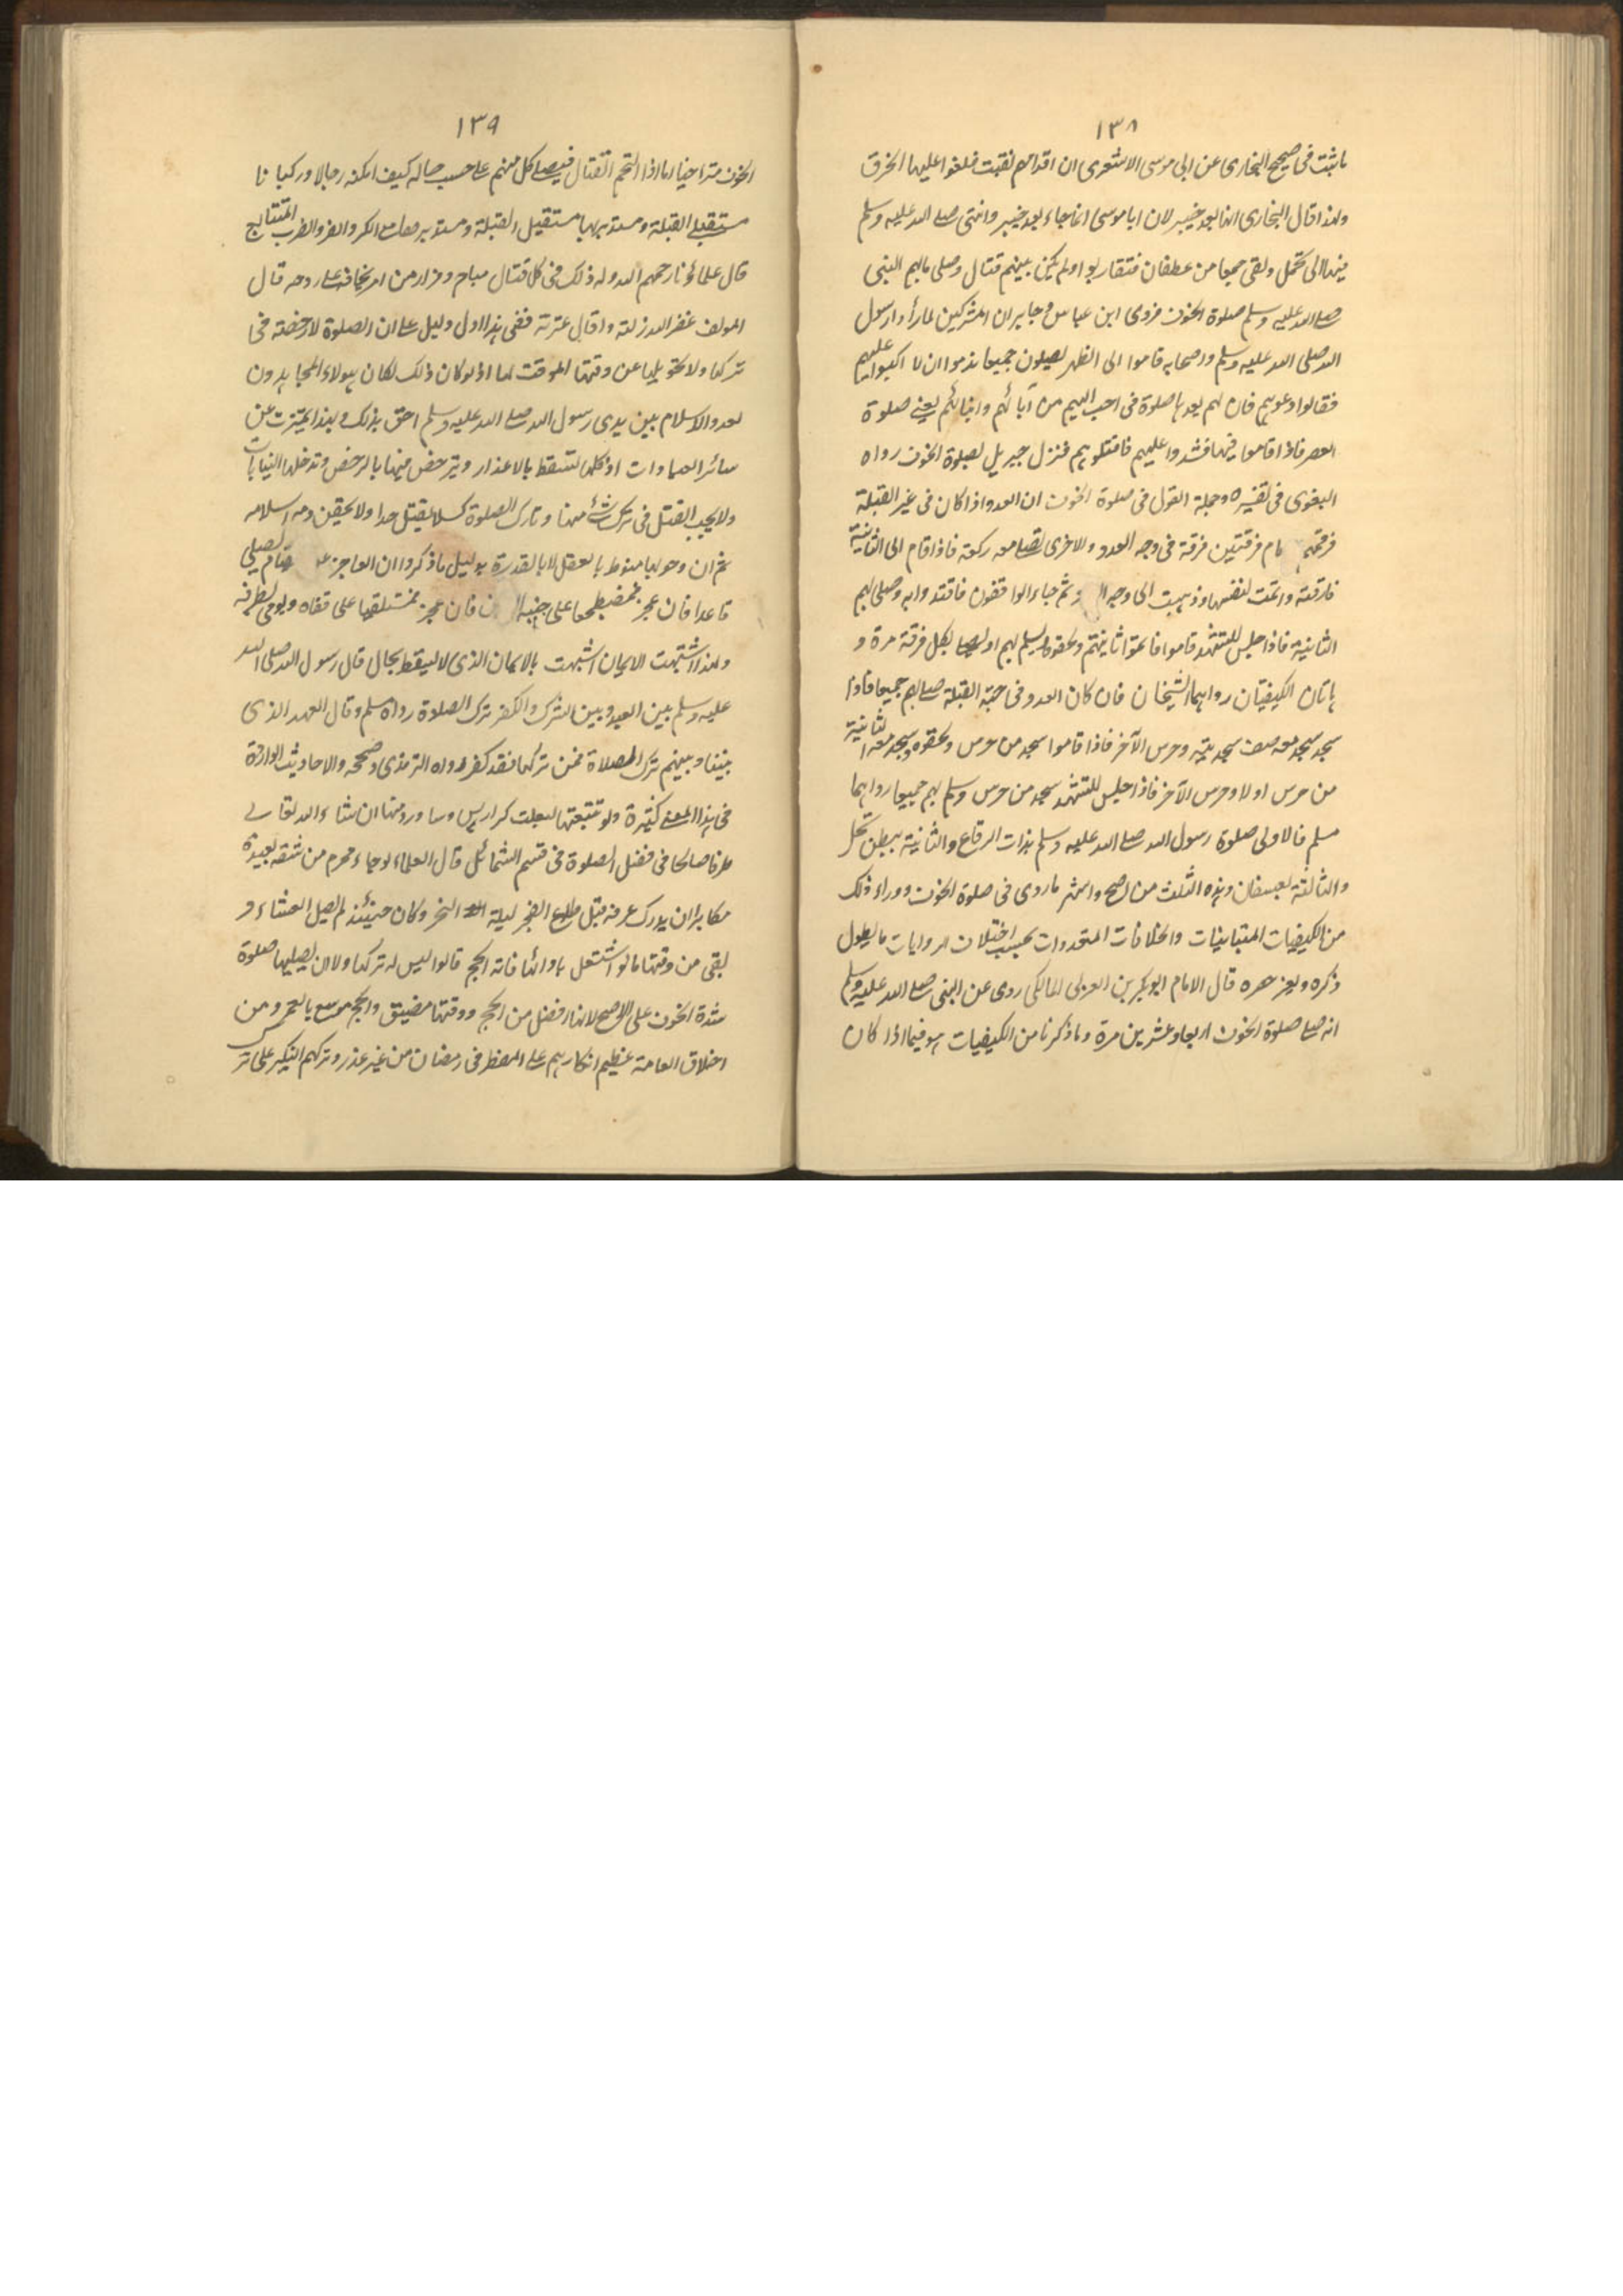 ١٣٨
ما ثبت فى صحيح البخارى عن ابى موسى الاشعرى ان اقدامهم نقبت فلفوا عليها الخرق
ولهذا قال البخارى انها بعد خيبر لان ابا موسى انما جاء بعد خيبر وانتهى صلى الله عليه وسلم
فيها الى نخل ولقى جمعا من غطفان فتقاربوا ولم يكن بينهم قتال وصلى بهم النبى
صلى الله عليه وسلم صلوة الخوف فروى ابن عباس وجابر ان المشركين لما رأوا رسول
الله صلى الله عليه وسلم واصحابه قاموا الى الظهر يصلون جميعا ندموا ان لا اكبوا عليهم
فقالوا دعوهم فان لهم بعدها صلوة هى احب اليهم من آبائهم وابنائهم يعنى صلوة
العصر فاذا قاموا فيها فشدوا عليهم فاقتلوهم فنزل جبريل بصلوة الخوف رواه
البغوى فى تفسيره وجملة القول فى صلوة الخوف ان العدو اذا كان فى غير القبلة
فرقهم الامام فرقتين فرقة فى وجه العدو والاخرى تصلى معه ركعة فاذا قام الى الثانية
فارقته واتمت لنفسها وذهبت الى وجه ثم جاء الواقفون فاقتدوا به وصلى بهم
الثانية فاذا جلس للتشهد قاموا فاتموا ثانيتهم ولحقوه ليسلم بهم او يصلى بكل فرقة مرة و
هاتان الكيفيتان رواهما الشيخان فان كان العدو فى جهة القبلة صلى بهم جميعا فاذا
سجد سجد معه صف سجدتيه وحرس الآخر فاذا قاموا سجد من حرس ولحقوه وسجد معه الثانية
من حرس اولا وحرس الآخر فاذا جلس للتشهد سجد من حرس وسلم بهم جميعا رواهما
مسلم فالاولى صلوة رسول الله صلى الله عليه وسلم بذات الرقاع والثانية ببطن نخل
والثالثة بعسفان وهذه الثلث من اصح واشهر ما روى فى صلوة الخوف ووراء ذلك
من الكيفيات المتباينات والخلافات المتعددات بحسب اختلاف الروايات ما يطول
ذكره ويعز حصره قال الامام ابو بكر بن العربى المالكى روى عن النبى صلى الله عليه وسلم
انه صلى صلوة الخوف اربعا وعشرين مرة وما ذكرنا من الكيفيات هو فيما اذا كان
١٣٩
الخوف متراخيا اما اذا التحم القتال فيصلى كل منهم على حسب حاله كيف امكنه رجالا وركبانا
مستقبلى القبلة ومستدبريها مستقبل القبلة ومستدبرها مع الكر والفر والضرب المتتابع
قال علماؤنا رحمهم الله وله ذلك فى كل قتال مباح وفرار من امر يخافه على روحه قال
المولف غفر الله زلته واقال عثرته ففى هذا اول دليل على ان الصلوة لا رخصة فى
تركها ولا تحويلها عن وقتها الموقت لها اذ لو كان ذلك لكان هولاء المجاهدون
لعدو الاسلام بين يدى رسول الله صلى الله عليه وسلم احق بذلك وبهذا تميزت عن
سائر العبادات اذ كلها تسقط بالاعذار ويترخص فيها بالرخص وتدخلها النيابات
ولا يجب القتل فى ترك شئ منها وتارك الصلوة كسلا يقتل حدا ولا يحقن دمه اسلامه
ثم ان وجوبها منوط بالعقل لا بالقدرة بدليل ما ذكروا ان العاجز عن القيام يصلى
قاعدا فان عجز فمضطجعا على جنبه فان عجز فمستلقيا على قفاه ويومى بطرفه
ولهذا اشبهت الايمان اشبهت بالايمان الذى لا يسقط بحال قال رسول الله صلى الله
عليه وسلم بين العبد وبين الشرك والكفر ترك الصلوة رواه مسلم وقال العهد الذى
بيننا وبينهم ترك الصلاة فمن تركها فقد كفر رواه الترمذى وصححه والاحاديث الواردة
فى هذا المعنى كثيرة ولو تتبعتها لبلغت كراريس وساورد منها ان شاء الله تعالى
طرفا صالحا فى فضل الصلوة فى قسم الشمائل قال العلماء لو جاء محرم من شقة بعيدة
مكابرا ان يدرك عرفة قبل طلوع الفجر ليلة النحر وكان حينئذ لم يصل العشاء و
بقى من وقتها ما لو اشتغل بادائها فاته الحج قالوا ليس له تركها ولا ان يصليها صلوة
شدة الخوف على الاصح لانها افضل من الحج ووقتها مضيق والحج موسع بالعمر ومن
اخلاق العامة عظيم انكارهم على المفطر فى رمضان من غير عذر وتركهم النكير على تر